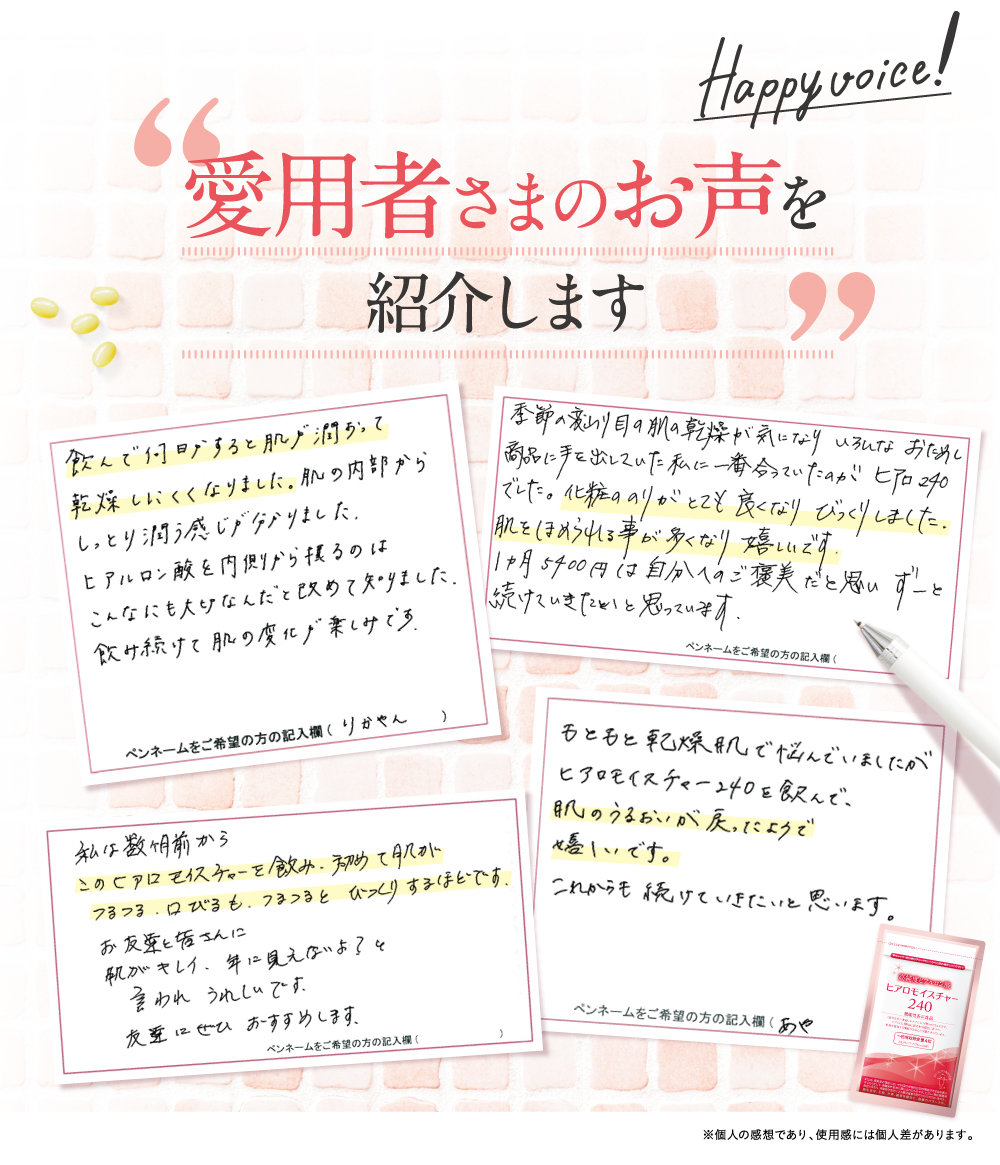 Happy voice!
愛用者さまのお声を
紹介します
飲んで何日かすると肌が潤おって
乾燥しにくくなりました。肌の内部から
しっとり潤う感じが分かりました.
ヒアルロン酸を内側から摂るのは
こんなにも大切なんだと改めて知りました.
飲み続けて肌の変化が楽しみです.
ペンネームをご希望の方の記入欄( りかやん )
季節の変り目の肌の乾燥が気になり いろんな おためし
商品に手を出していた私に一番合っていたのが ヒアロ240
でした。化粧ののりがとても良くなり びっくりしました.
肌をほめられる事が多くなり 嬉しいです.
1カ月5400円は自分へのご褒美だと思い ずーと
続けていきたいと思っています.
ペンネームをご希望の方の記入欄(
私は数ヶ月前から
このヒアロモイスチャーを飲み、初めて肌が
つるつる、口びるも、つるつると びっくりするほどです.
お友達と皆さんに
肌がキレイ、年に見えないよ?と
言われ うれしいです.
友達にぜひ おすすめします.
ペンネームをご希望の方の記入欄( )
もともと乾燥肌で悩んでいましたが
ヒアロモイスチャー240を飲んで、
肌のうるおいが戻ったようで
嬉しいです。
これからも続けていきたいと思います。
ペンネームをご希望の方の記入欄( あや
ヒアロモイスチャー
240
※個人の感想であり、使用感には個人差があります。